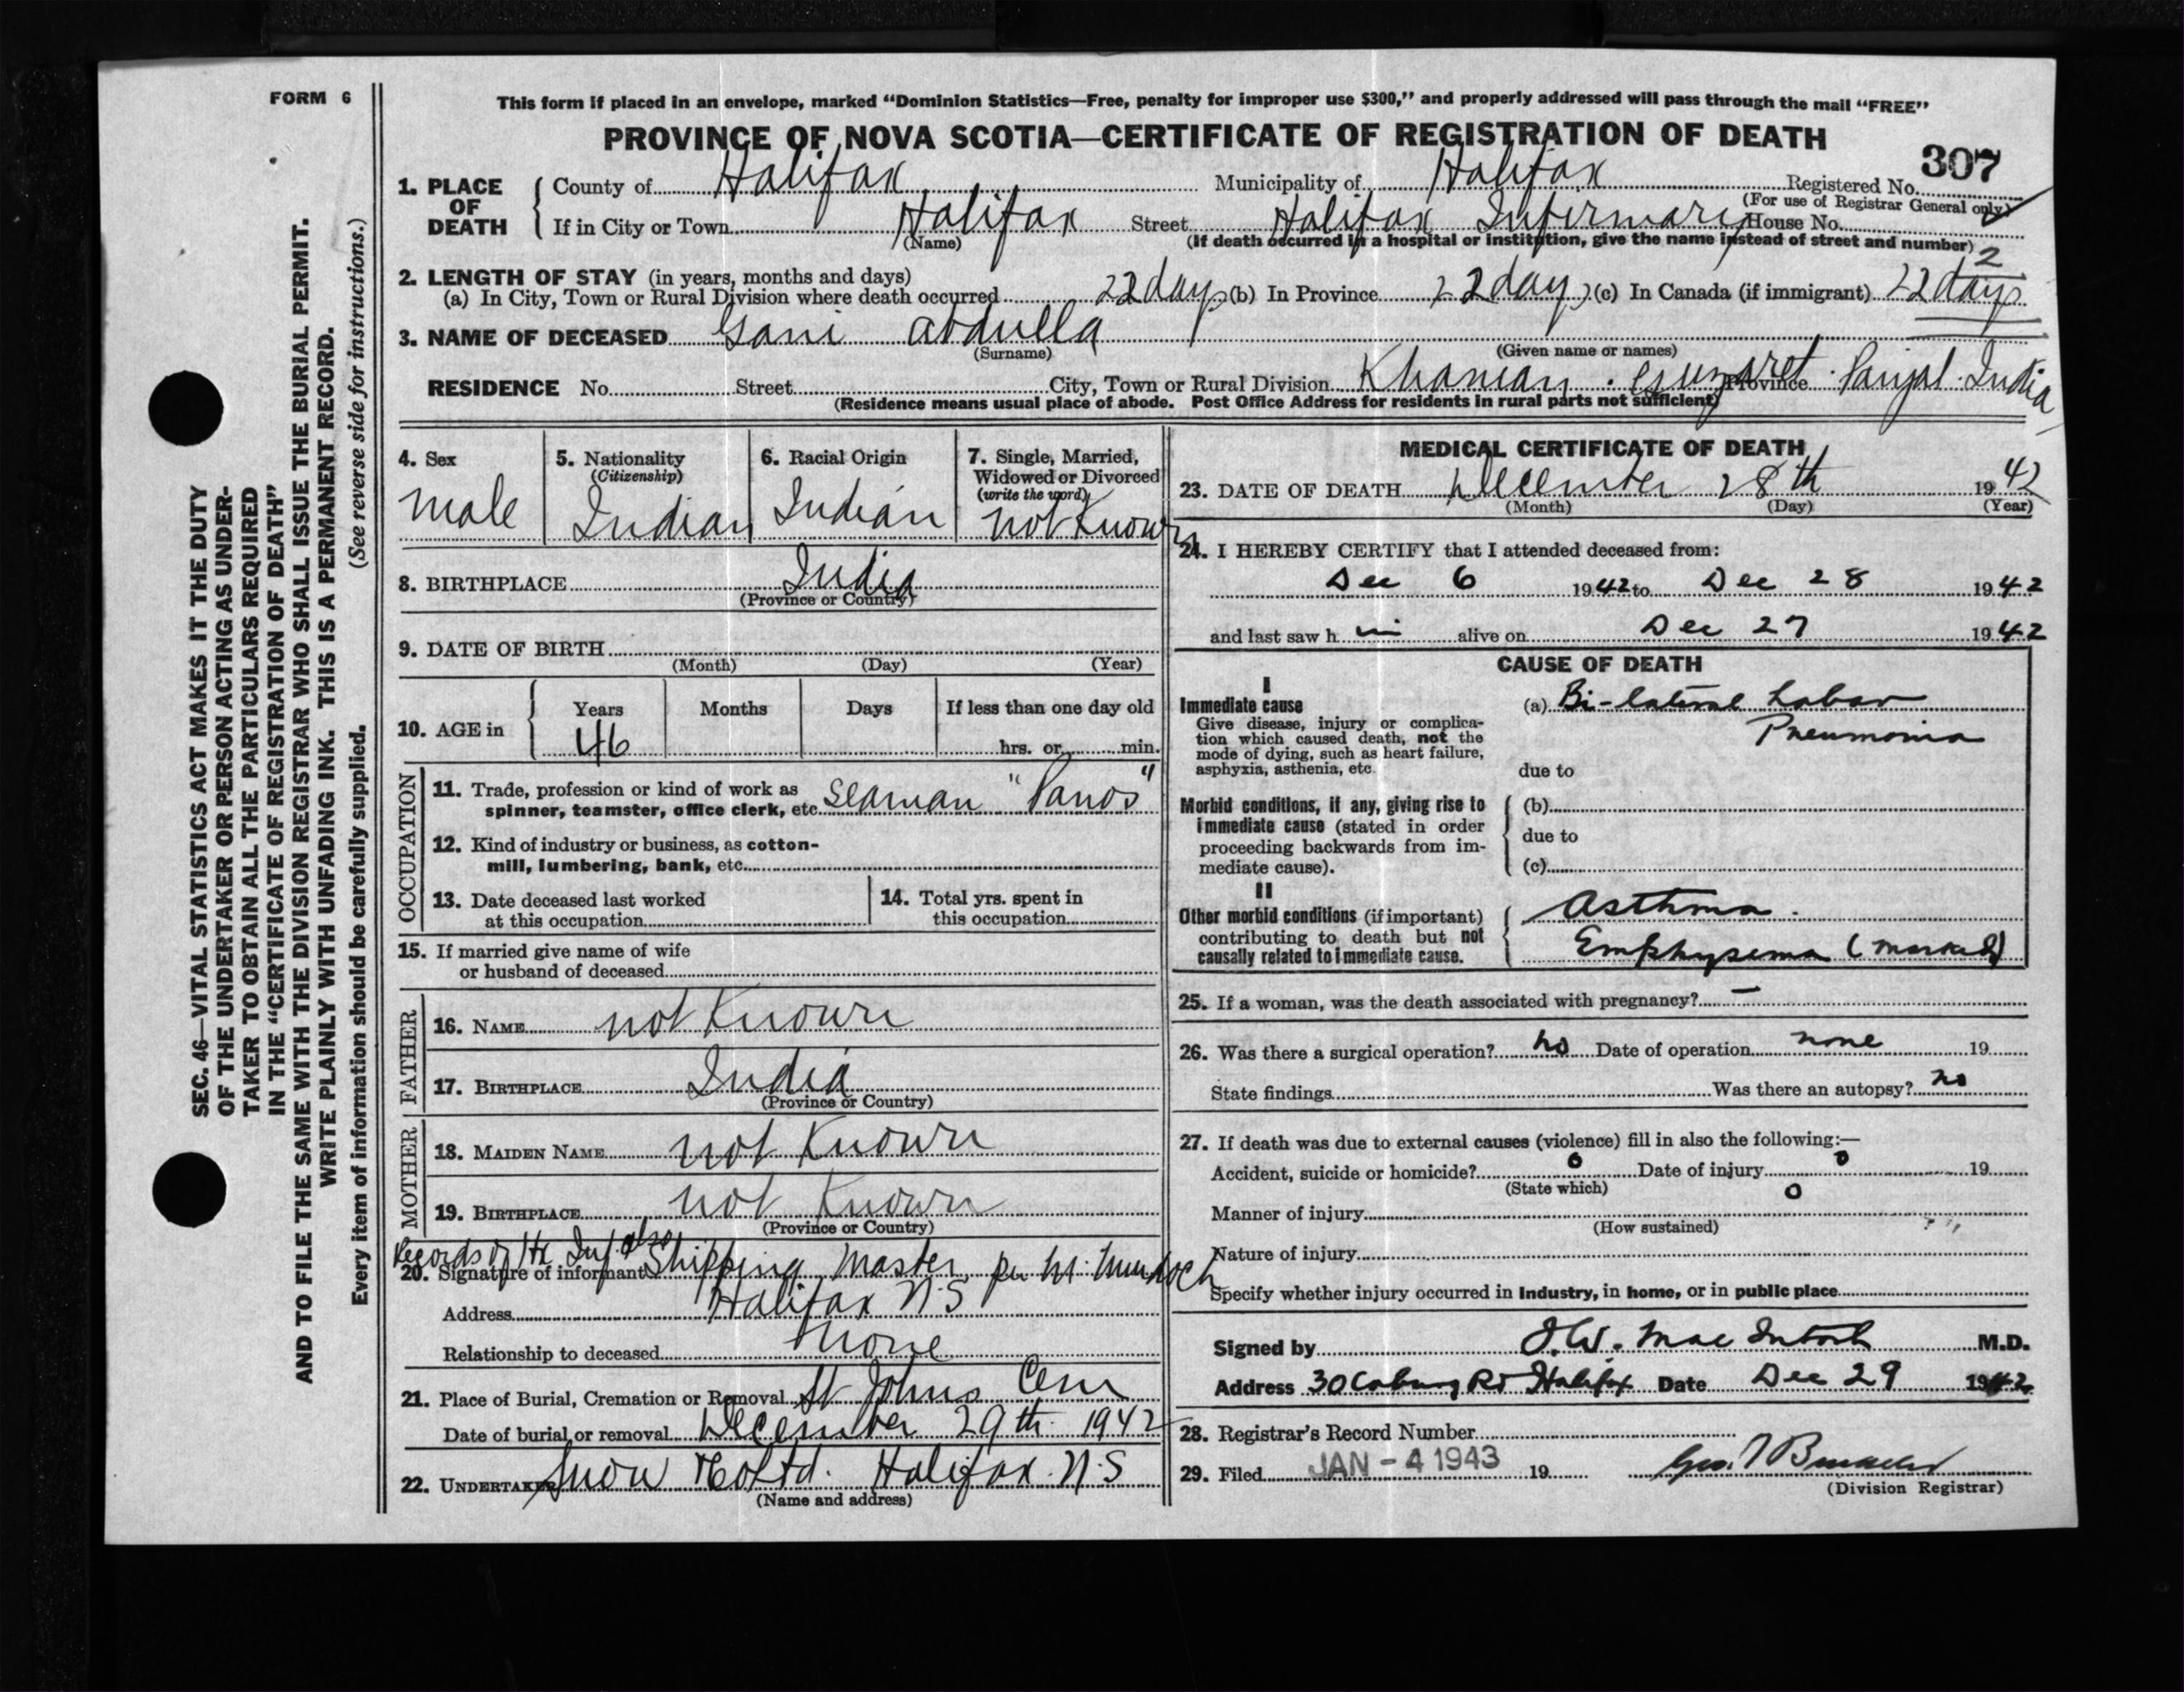 FORM 6
This form if placed in an envelope, marked “Dominion Statistics—Free, penalty for improper use $300,” and properly addressed will pass through the mail “FREE”
PROVINCE OF NOVA SCOTIA—CERTIFICATE OF REGISTRATION OF DEATH
307
1. PLACE OF DEATH
County of Halifax Municipality of Halifax Registered No.
(For use of Registrar General only)
If in City or Town Halifax Street Halifax Infirmary House No.
(Name) (If death occurred in a hospital or institution, give the name instead of street and number)
2
2. LENGTH OF STAY (in years, months and days)
(a) In City, Town or Rural Division where death occurred 22 days (b) In Province 22 days (c) In Canada (if immigrant) 22 days
3. NAME OF DECEASED Gani Abdulla
(Surname) (Given name or names)
RESIDENCE No. Street City, Town or Rural Division Khanian . Province India
(Residence means usual place of abode. Post Office Address for residents in rural parts not sufficient)
4. Sex
male
5. Nationality
(Citizenship)
Indian
6. Racial Origin
Indian
7. Single, Married,
Widowed or Divorced
(write the word)
not Known
8. BIRTHPLACE India
(Province or Country)
9. DATE OF BIRTH
(Month) (Day) (Year)
10. AGE in
Years Months Days If less than one day old
46 hrs. or min.
OCCUPATION
11. Trade, profession or kind of work as
spinner, teamster, office clerk, etc. Seaman "Panos"
12. Kind of industry or business, as cotton-
mill, lumbering, bank, etc.
13. Date deceased last worked
at this occupation
14. Total yrs. spent in
this occupation
15. If married give name of wife
or husband of deceased
FATHER
16. NAME not Known
17. BIRTHPLACE India
(Province or Country)
MOTHER
18. MAIDEN NAME not Known
19. BIRTHPLACE not Known
(Province or Country)
Records of Hx Inf. also
20. Signature of informant Shipping Master per M. Murdoch
Address Halifax N.S
Relationship to deceased None
21. Place of Burial, Cremation or Removal St Johns Cem
Date of burial or removal December 29th 1942
22. UNDERTAKER Snow & Co Ltd. Halifax. N.S
(Name and address)
MEDICAL CERTIFICATE OF DEATH
23. DATE OF DEATH December 28th 1942
(Month) (Day) (Year)
24. I HEREBY CERTIFY that I attended deceased from:
Dec 6 1942 to Dec 28 1942
and last saw h im alive on Dec 27 1942
CAUSE OF DEATH
I
Immediate cause
Give disease, injury or complica-
tion which caused death, not the
mode of dying, such as heart failure,
asphyxia, asthenia, etc.
(a) Bi-lateral Lobar
Pneumonia
due to
Morbid conditions, if any, giving rise to
immediate cause (stated in order
proceeding backwards from im-
mediate cause).
(b)
due to
(c)
II
Other morbid conditions (if important)
contributing to death but not
causally related to immediate cause.
Asthma.
Emphysema (marked)
25. If a woman, was the death associated with pregnancy? —
26. Was there a surgical operation? no Date of operation none 19
State findings Was there an autopsy? no
27. If death was due to external causes (violence) fill in also the following:—
Accident, suicide or homicide? 0 Date of injury 0 19
(State which)
Manner of injury 0
(How sustained)
Nature of injury
Specify whether injury occurred in Industry, in home, or in public place
Signed by J.W. MacIntosh M.D.
Address 30 Coburg Rd Halifax Date Dec 29 1942
28. Registrar's Record Number
29. Filed JAN - 4 1943 19
(Division Registrar)
SEC. 46—VITAL STATISTICS ACT MAKES IT THE DUTY
OF THE UNDERTAKER OR PERSON ACTING AS UNDER-
TAKER TO OBTAIN ALL THE PARTICULARS REQUIRED
IN THE “CERTIFICATE OF REGISTRATION OF DEATH”
AND TO FILE THE SAME WITH THE DIVISION REGISTRAR WHO SHALL ISSUE THE BURIAL PERMIT.
WRITE PLAINLY WITH UNFADING INK. THIS IS A PERMANENT RECORD.
Every item of information should be carefully supplied. (See reverse side for instructions.)